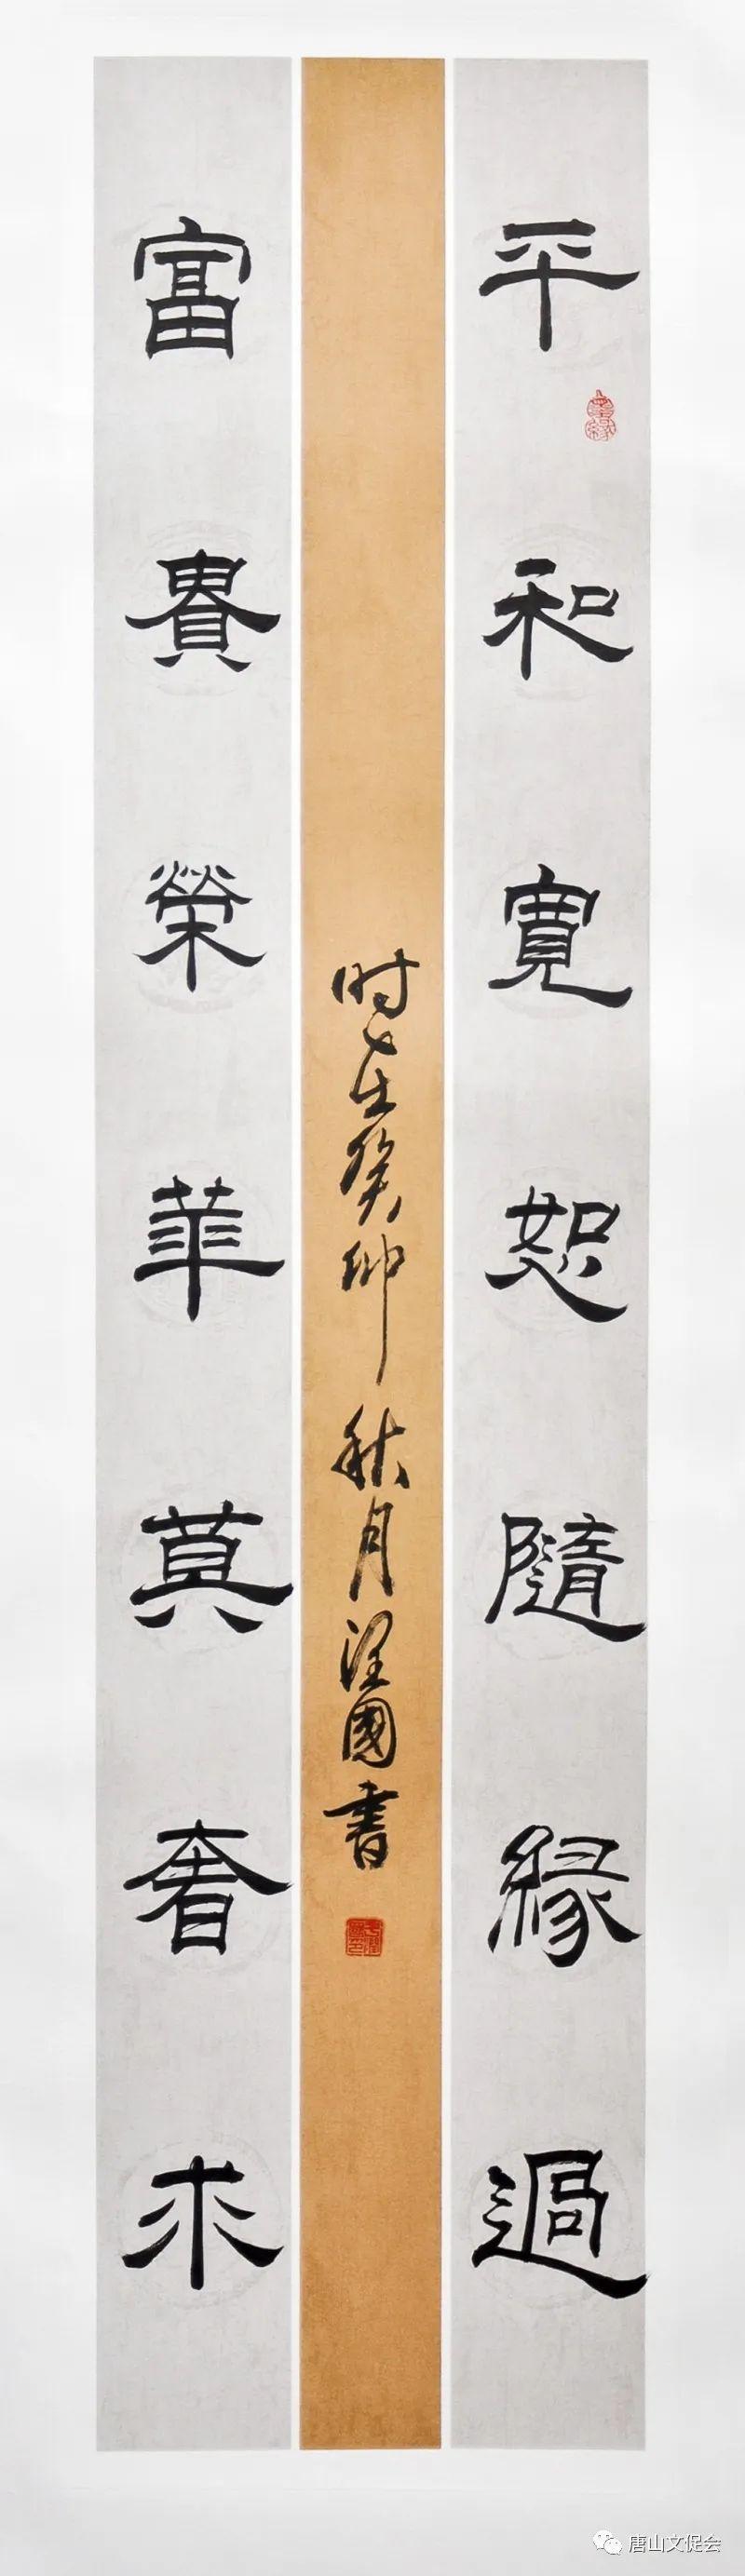 平和寬恕隨緣過
时在癸卯秋月浬國書
富貴榮華莫奢求
唐山文促会